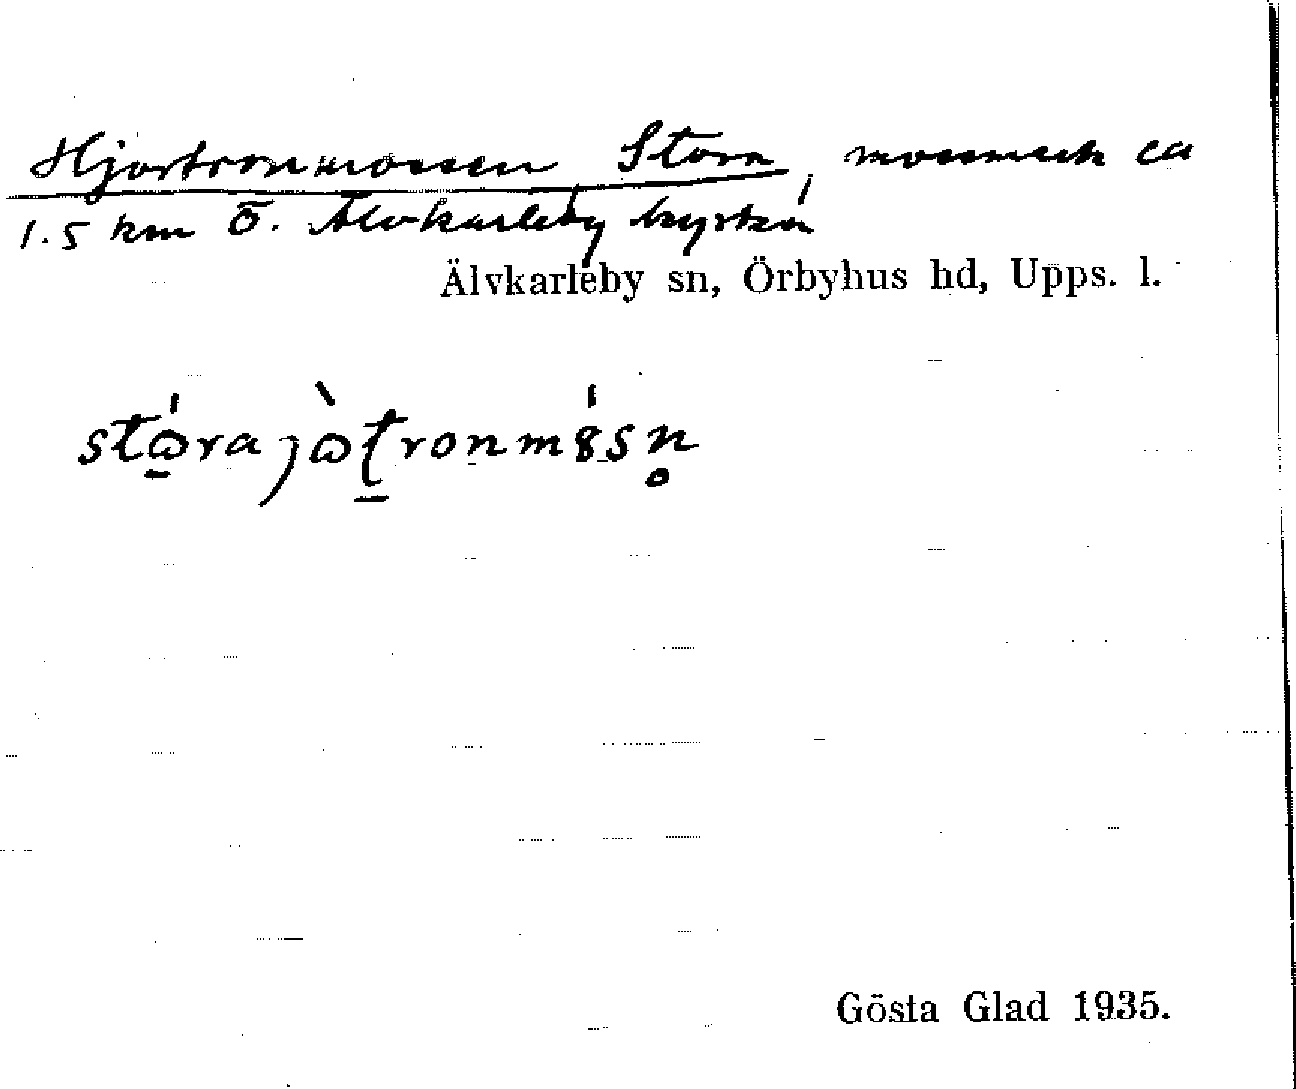 Hjortronmossen, Stora, mossmark ca
1.5 km Ö. Älvkarleby kyrka
Älvkarleby sn, Örbyhus hd, Upps. l.
Gösta Glad 1935.